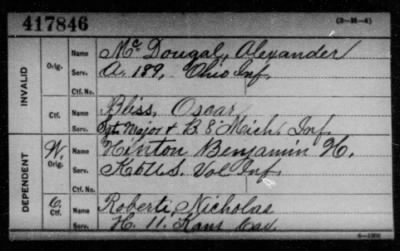 417846
(3-M-4)
INVALID
Orig.
Name
Mc Dougal, Alexander
Serv.
A. 189, Ohio Inf.
Ctf. No.
Ctf.
Name
Bliss, Oscar
Serv.
Sgt. Major & B 8" Mich. Inf.
Ctf. No.
DEPENDENT
W.
Orig.
Name
Hinton Benjamin H.
Serv.
U.S. Vol Inf.
Ctf. No.
C.
Ctf.
Name
Roberti, Nicholas
Serv.
H. 11. Kans Cav.